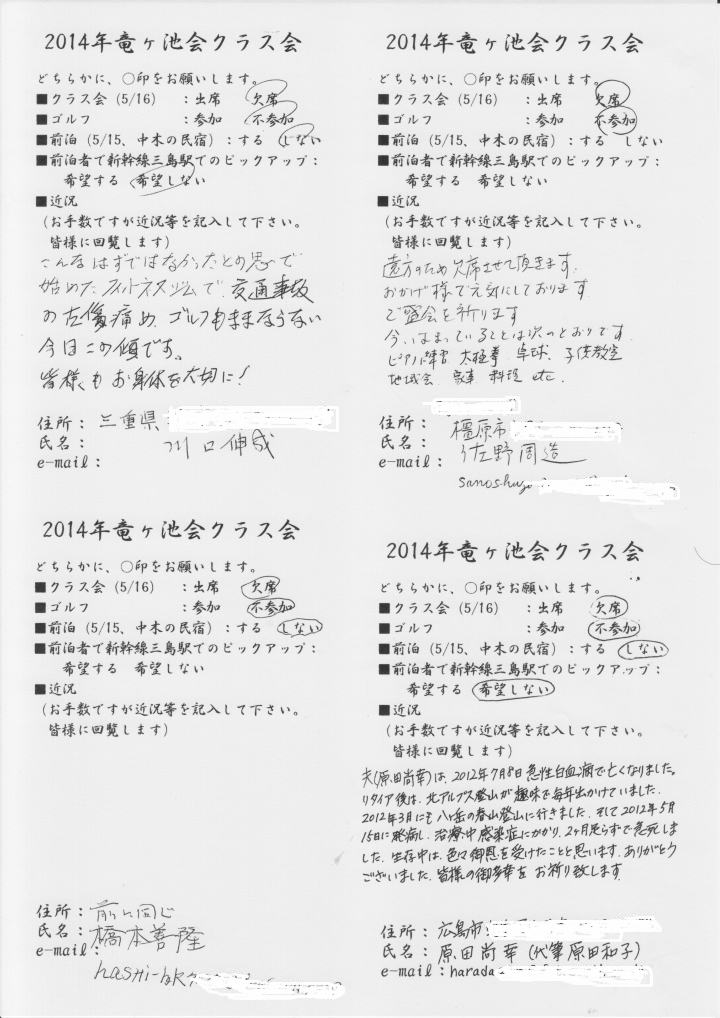 2014年竜ヶ池会クラス会
どちらかに、○印をお願いします。
■クラス会 (5/16) :出席 欠席
■ゴルフ :参加 不参加
■前泊 (5/15、中木の民宿) :する しない
■前泊者で新幹線三島駅でのピックアップ:
希望する 希望しない
■近況
(お手数ですが近況等を記入して下さい。
皆様に回覧します)
こんなはずではなかったとの思で
始めたフィットネスジムで、交通事故
の古傷痛め、ゴルフもままならない
今日この頃です。
皆様もお身体を大切に!
住所:三重県
氏名: 川口伸成
e-mail:
2014年竜ヶ池会クラス会
どちらかに、○印をお願いします。
■クラス会 (5/16) :出席 欠席
■ゴルフ :参加 不参加
■前泊 (5/15、中木の民宿) :する しない
■前泊者で新幹線三島駅でのピックアップ:
希望する 希望しない
■近況
(お手数ですが近況等を記入して下さい。
皆様に回覧します)
遠方のため欠席させて頂きます.
おかげ様で元気にしております
ご盛会を祈ります
今、はまっていることは次のとおりです
ピアノ 太極拳 卓球、子供教室
地域会 家事 料理 etc.
住所: 橿原市
氏名: 佐野周造
e-mail: sanoshuzo
2014年竜ヶ池会クラス会
どちらかに、○印をお願いします。
■クラス会 (5/16) :出席 欠席
■ゴルフ :参加 不参加
■前泊 (5/15、中木の民宿) :する しない
■前泊者で新幹線三島駅でのピックアップ:
希望する 希望しない
■近況
(お手数ですが近況等を記入して下さい。
皆様に回覧します)
住所:前に同じ
氏名:橋本善隆
e-mail:
hashi-
2014年竜ヶ池会クラス会
どちらかに、○印をお願いします。
■クラス会 (5/16) :出席 欠席
■ゴルフ :参加 不参加
■前泊 (5/15、中木の民宿) :する しない
■前泊者で新幹線三島駅でのピックアップ:
希望する 希望しない
■近況
(お手数ですが近況等を記入して下さい。
皆様に回覧します)
夫(原田尚幸)は、2012年7月8日急性白血病で亡くなりました。
リタイア後は、北アルプス登山が趣味で毎年出かけていました.
2012年3月にも八ヶ岳の春山登山に行きました. そして2012年5月
15日に発病し、治療中感染症にかかり、2ヶ月足らずで急死しま
した. 生存中は、色々御恩を受けたことと思います. ありがとう
ございました. 皆様の御多幸をお祈り致します.
住所:広島市
氏名:原田尚幸(代筆原田和子)
e-mail:harada